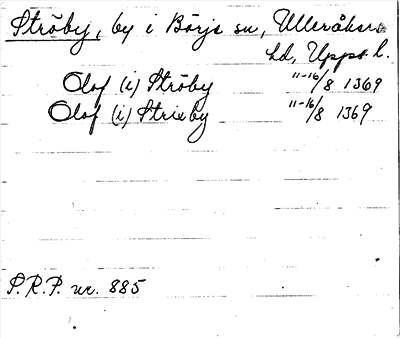 Ströby, by i Börje sn, Ulleråkers
hd, Upps. l.
Olof (i) Ströby 11-16/8 1369
Olof (i) Strieby 11-16/8 1369
P.R.P. nr. 885